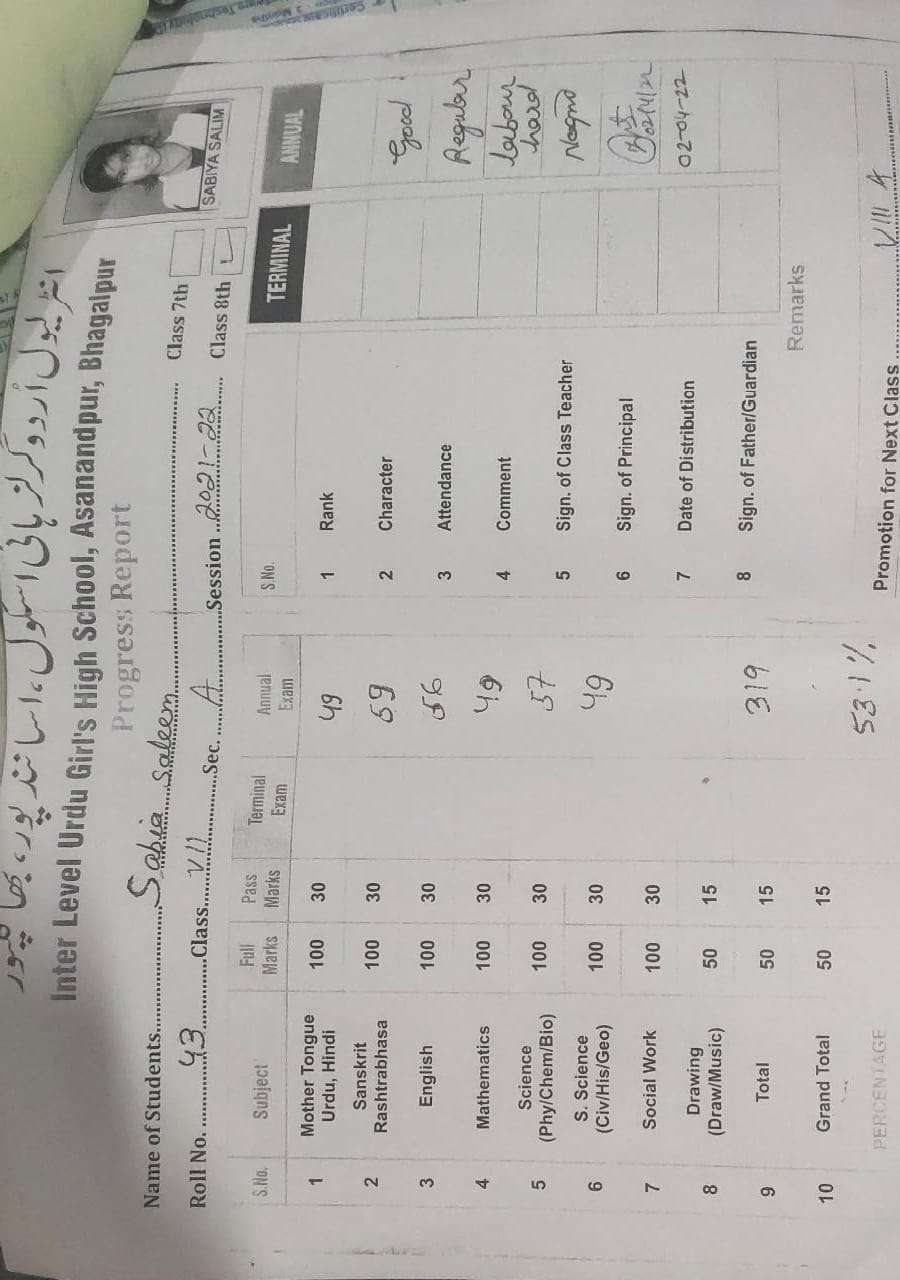 انٹر لیول اُردو گرلز ہائی اسکول، اسانندپور، بھاگلپور
Inter Level Urdu Girl's High School, Asanandpur, Bhagalpur
Progress Report
SABIYA SALIM
Name of Students Sabia Saleem Class 7th
Roll No. 43 Class VII Sec. A Session 2021-22 Class 8th
S.No. Subject Full Marks Pass Marks Terminal Exam Annual Exam
1 Mother Tongue Urdu, Hindi 100 30 49
2 Sanskrit Rashtrabhasa 100 30 59
3 English 100 30 56
4 Mathematics 100 30 49
5 Science (Phy/Chem/Bio) 100 30 57
6 S. Science (Civ/His/Geo) 100 30 49
7 Social Work 100 30
8 Drawing (Draw/Music) 50 15
9 Total 50 15 319
10 Grand Total 50 15
PERCENTAGE 53.1%
S.No. TERMINAL ANNUAL
1 Rank
2 Character Good
3 Attendance Regular
4 Comment labour hard
5 Sign. of Class Teacher
6 Sign. of Principal 02/4/22
7 Date of Distribution 02-04-22
8 Sign. of Father/Guardian
Remarks
Promotion for Next Class VIII A